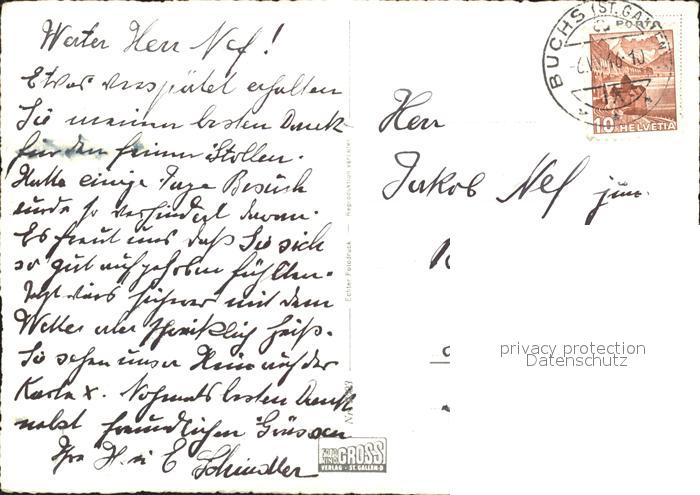 Werter Herr Nef!
Etwas verspätet erhalten
Sie meinen besten Dank
für den feinen Stollen.
Hatte einige Tage Besuch
wurde so verhindert daran.
Es freut uns daß Sie sich
so gut aufgehoben fühlten.
Jetzt wirs mit dem
Wetter aber schrecklich heiß.
Sie sehen unser Heim auf der
Karte x. Nochmals besten Dank
nebst freundlichen Grüssen
Ihre H. u E Schindler
Herr
Jakob Nef jun.
BUCHS (ST. GALLEN)
10 HELVETIA
Echter Fotodruck — Reproduktion verboten
FOTO GROSS
VERLAG - ST. GALLEN
privacy protection
Datenschutz